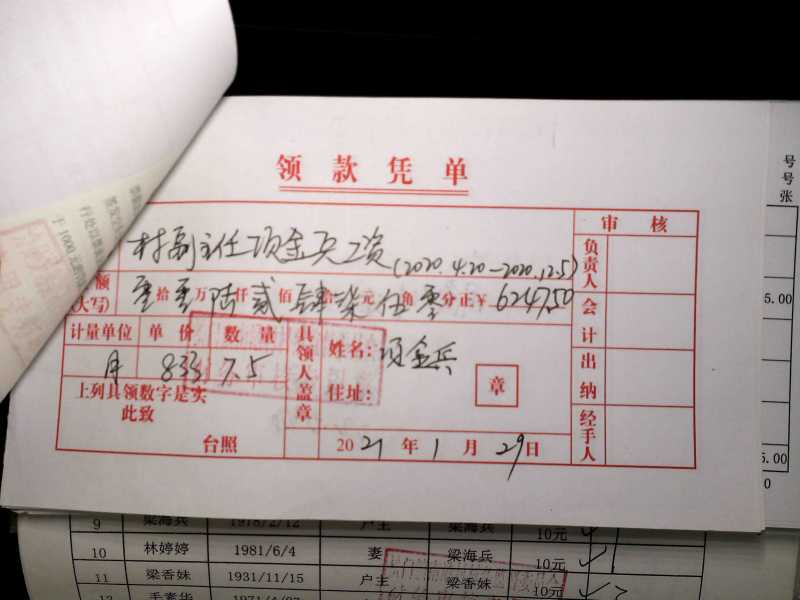 领款凭单
村副主任项金兵工资(2020.4.20-2020.12.5)
额(大写) 零拾零万陆仟贰佰肆拾柒元伍角零分正¥6247.50
计量单位 单价 数量
月 833 7.5
上列具领数字是实
此致
台照
具领人盖章
姓名:项金兵
住址:
章
2021年1月29日
审核
负责人
会计
出纳
经手人
号
号
张
5.00
5.00
0
于1000元的
9 梁海兵 1978/2/12 户主 梁海兵 10元
10 林婷婷 1981/6/4 妻 梁海兵 10元
11 梁香妹 1931/11/15 户主 梁香妹 10元